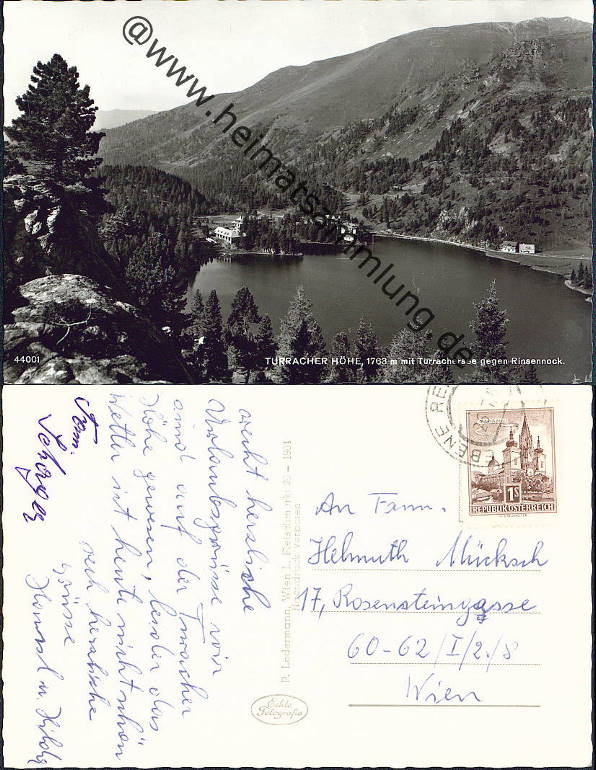 @www.heimatsammlung.de
44001
TURRACHER HÖHE, 1763 m mit Turrachersee gegen Rinsennock.
recht herzliche
Urlaubsgrüsse wir
sind auf der Turracher
Höhe gewesen, leider das
Wetter ist heute nicht schön
recht herzliche
Grüsse
Hansl u. Hilde
Fam.
P. Ledermann, Wien I., Fleischmarkt 20 – 1961
Nachdruck verboten
Echte
Fotografie
1S
REPUBLIK ÖSTERREICH
An Fam.
Helmuth Mücksch
17, Rosensteingasse
60-62/I/2/8
Wien